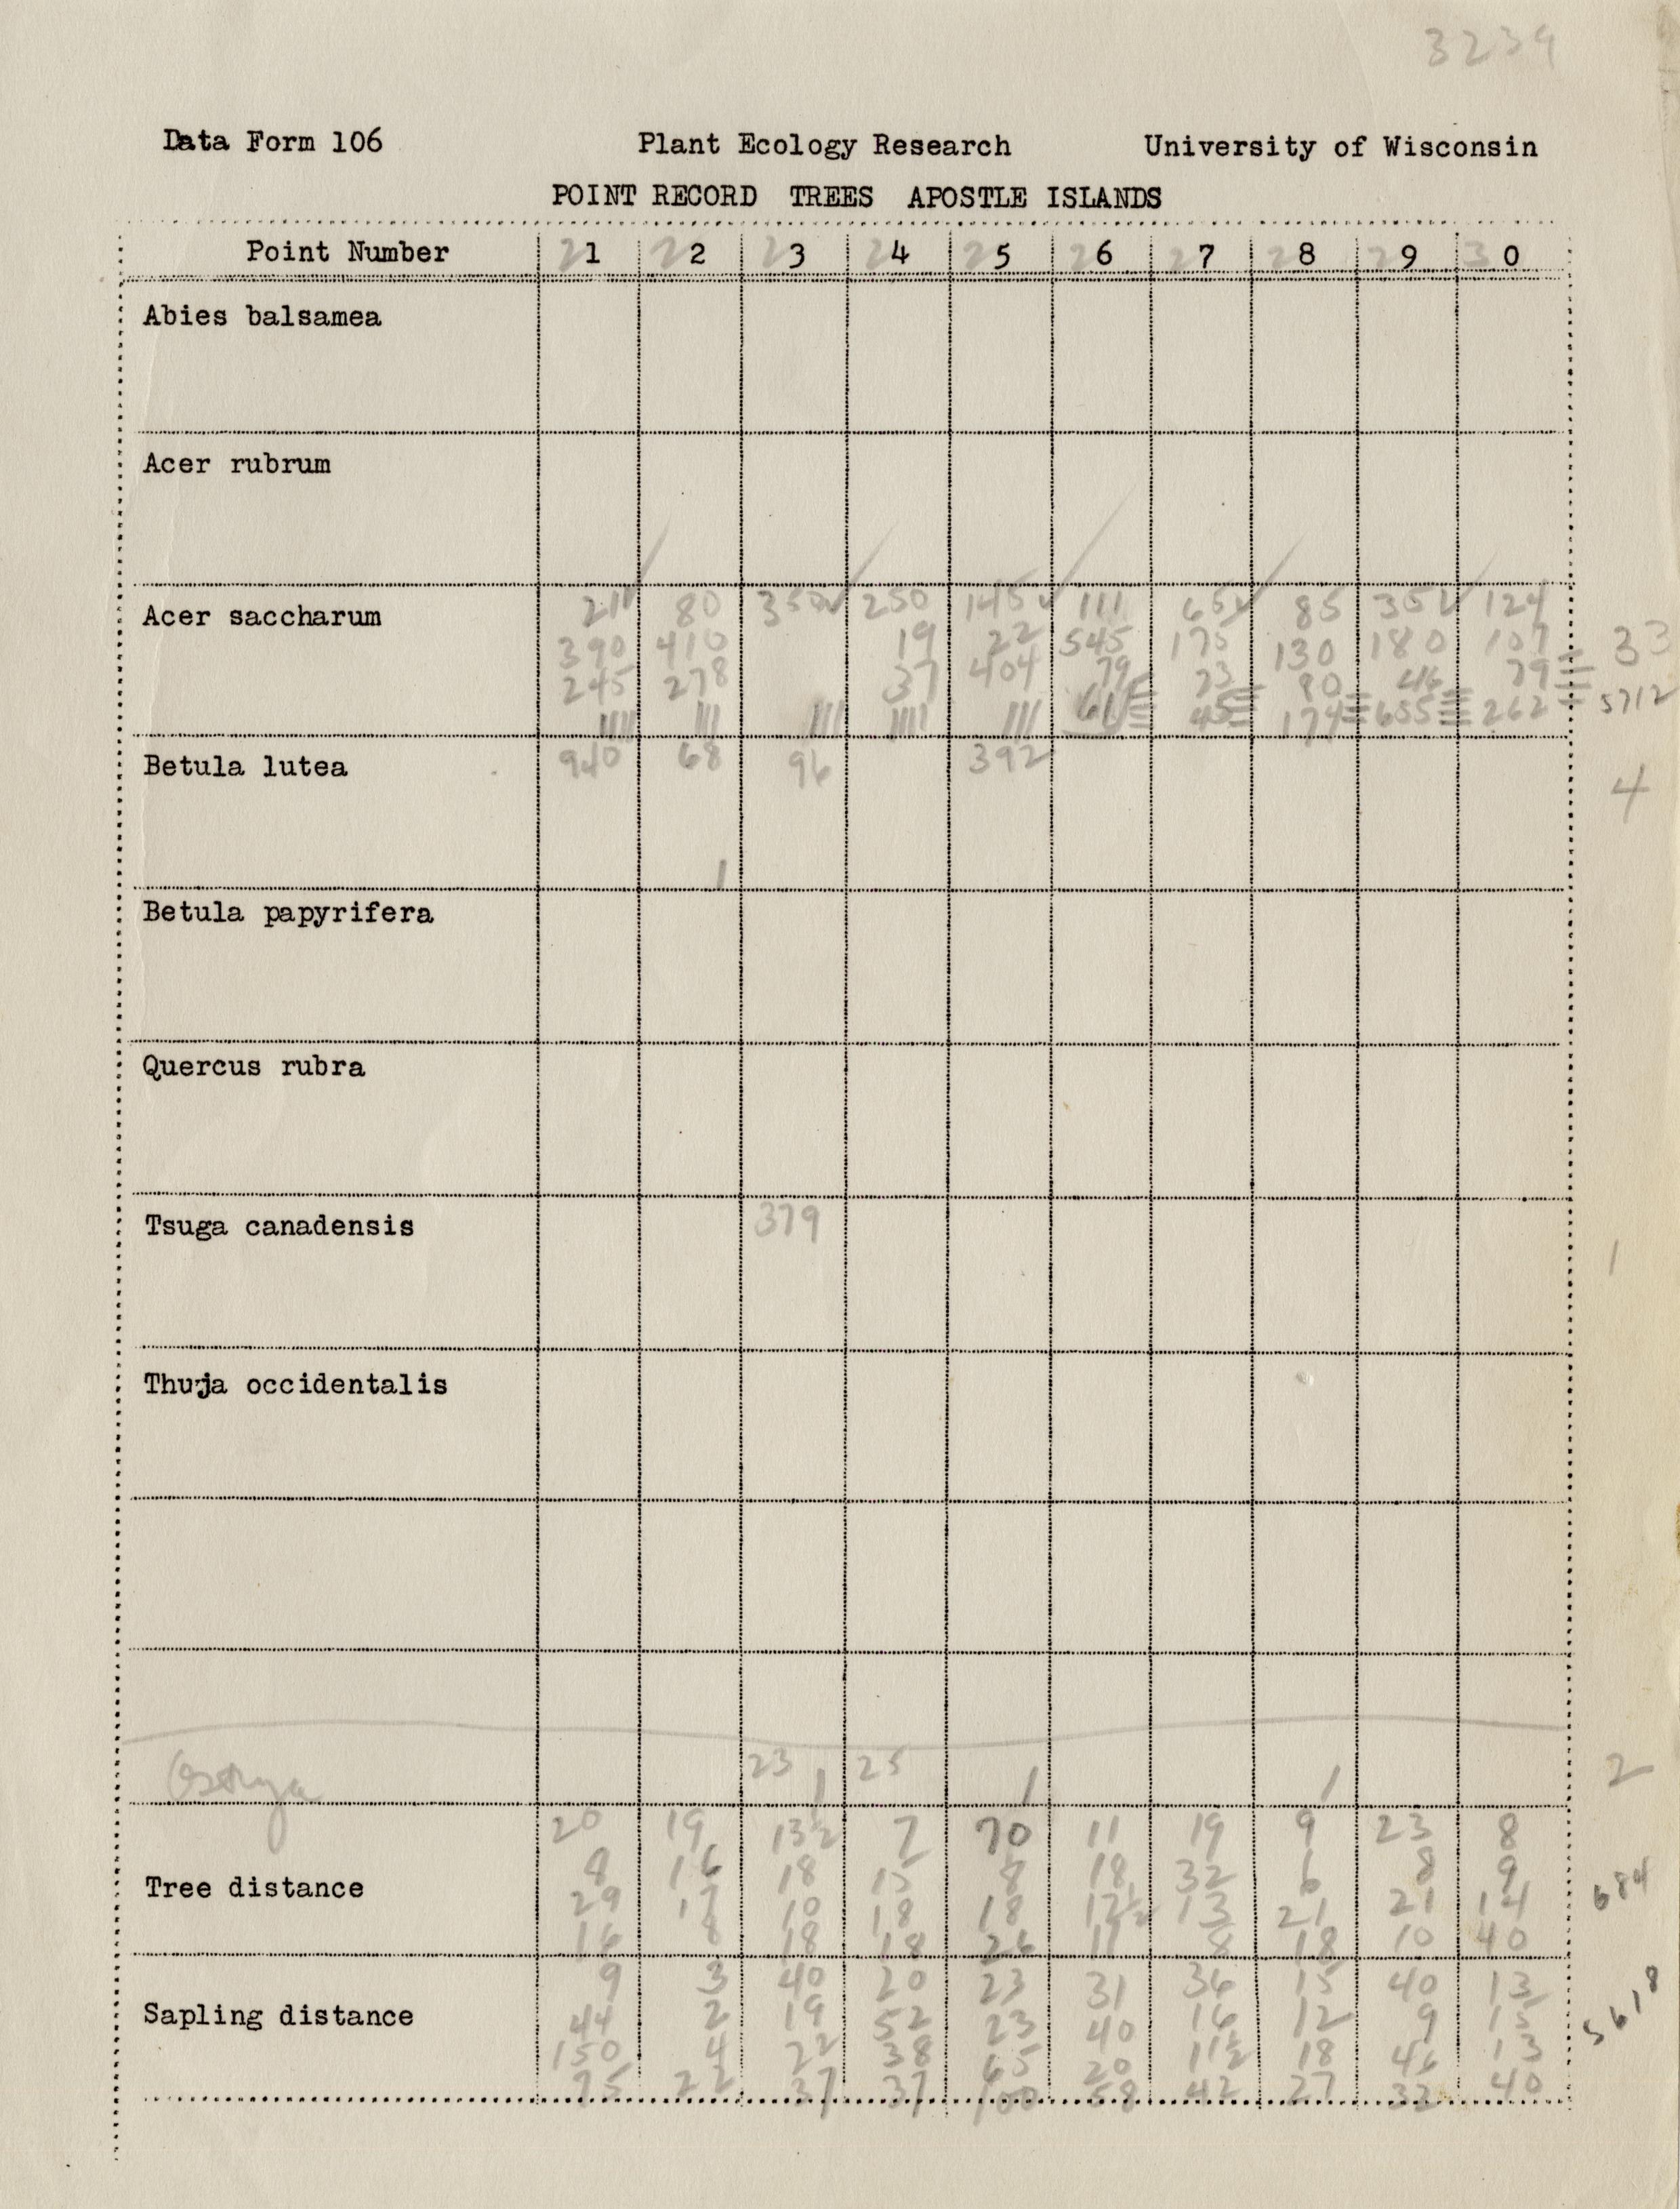 3239
Data Form 106 Plant Ecology Research University of Wisconsin
POINT RECORD TREES APOSTLE ISLANDS
Point Number 21 22 23 24 25 26 27 28 29 30
Abies balsamea
Acer rubrum
Acer saccharum 211 80 350 250 145 111 65 85 35 124
390 410 19 22 545 175 130 180 107 33
245 278 37 404 79 23 80 46 79
61 45 174 655 262 5712
Betula lutea 940 68 96 392 4
1
Betula papyrifera
Quercus rubra
Tsuga canadensis 379 1
Thuja occidentalis
Ostrya 23 25 2
1 1 1
20 19 13½ 7 70 11 19 9 23 8
8 16 18 15 8 18 32 6 8 9
Tree distance 29 17 10 18 18 12½ 13 21 21 14 684
16 8 18 18 26 11 8 18 10 40
9 3 40 20 23 31 36 15 40 13
Sapling distance 44 2 19 52 23 40 16 12 9 15 5618
150 4 22 38 65 20 11½ 18 46 13
75 22 37 37 100 58 42 27 33 40